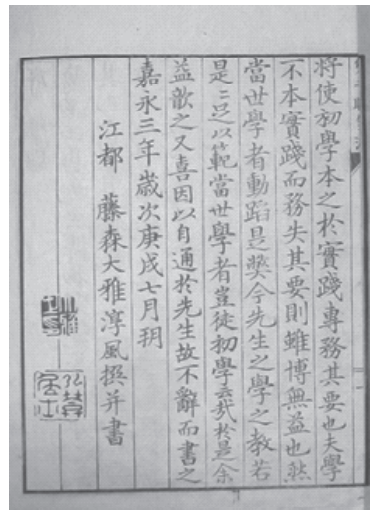 將使初學本之於實踐專務其要也夫學
不本實踐而務失其要則雖博無益也然
當世學者動蹈是弊今先生之學之教若
是是足以範當世學者豈徒初學云哉於是余
益歆之又喜因以自通於先生故不辭而書之
嘉永三年歲次庚戌七月
江都 藤森大雅淳風撰并書